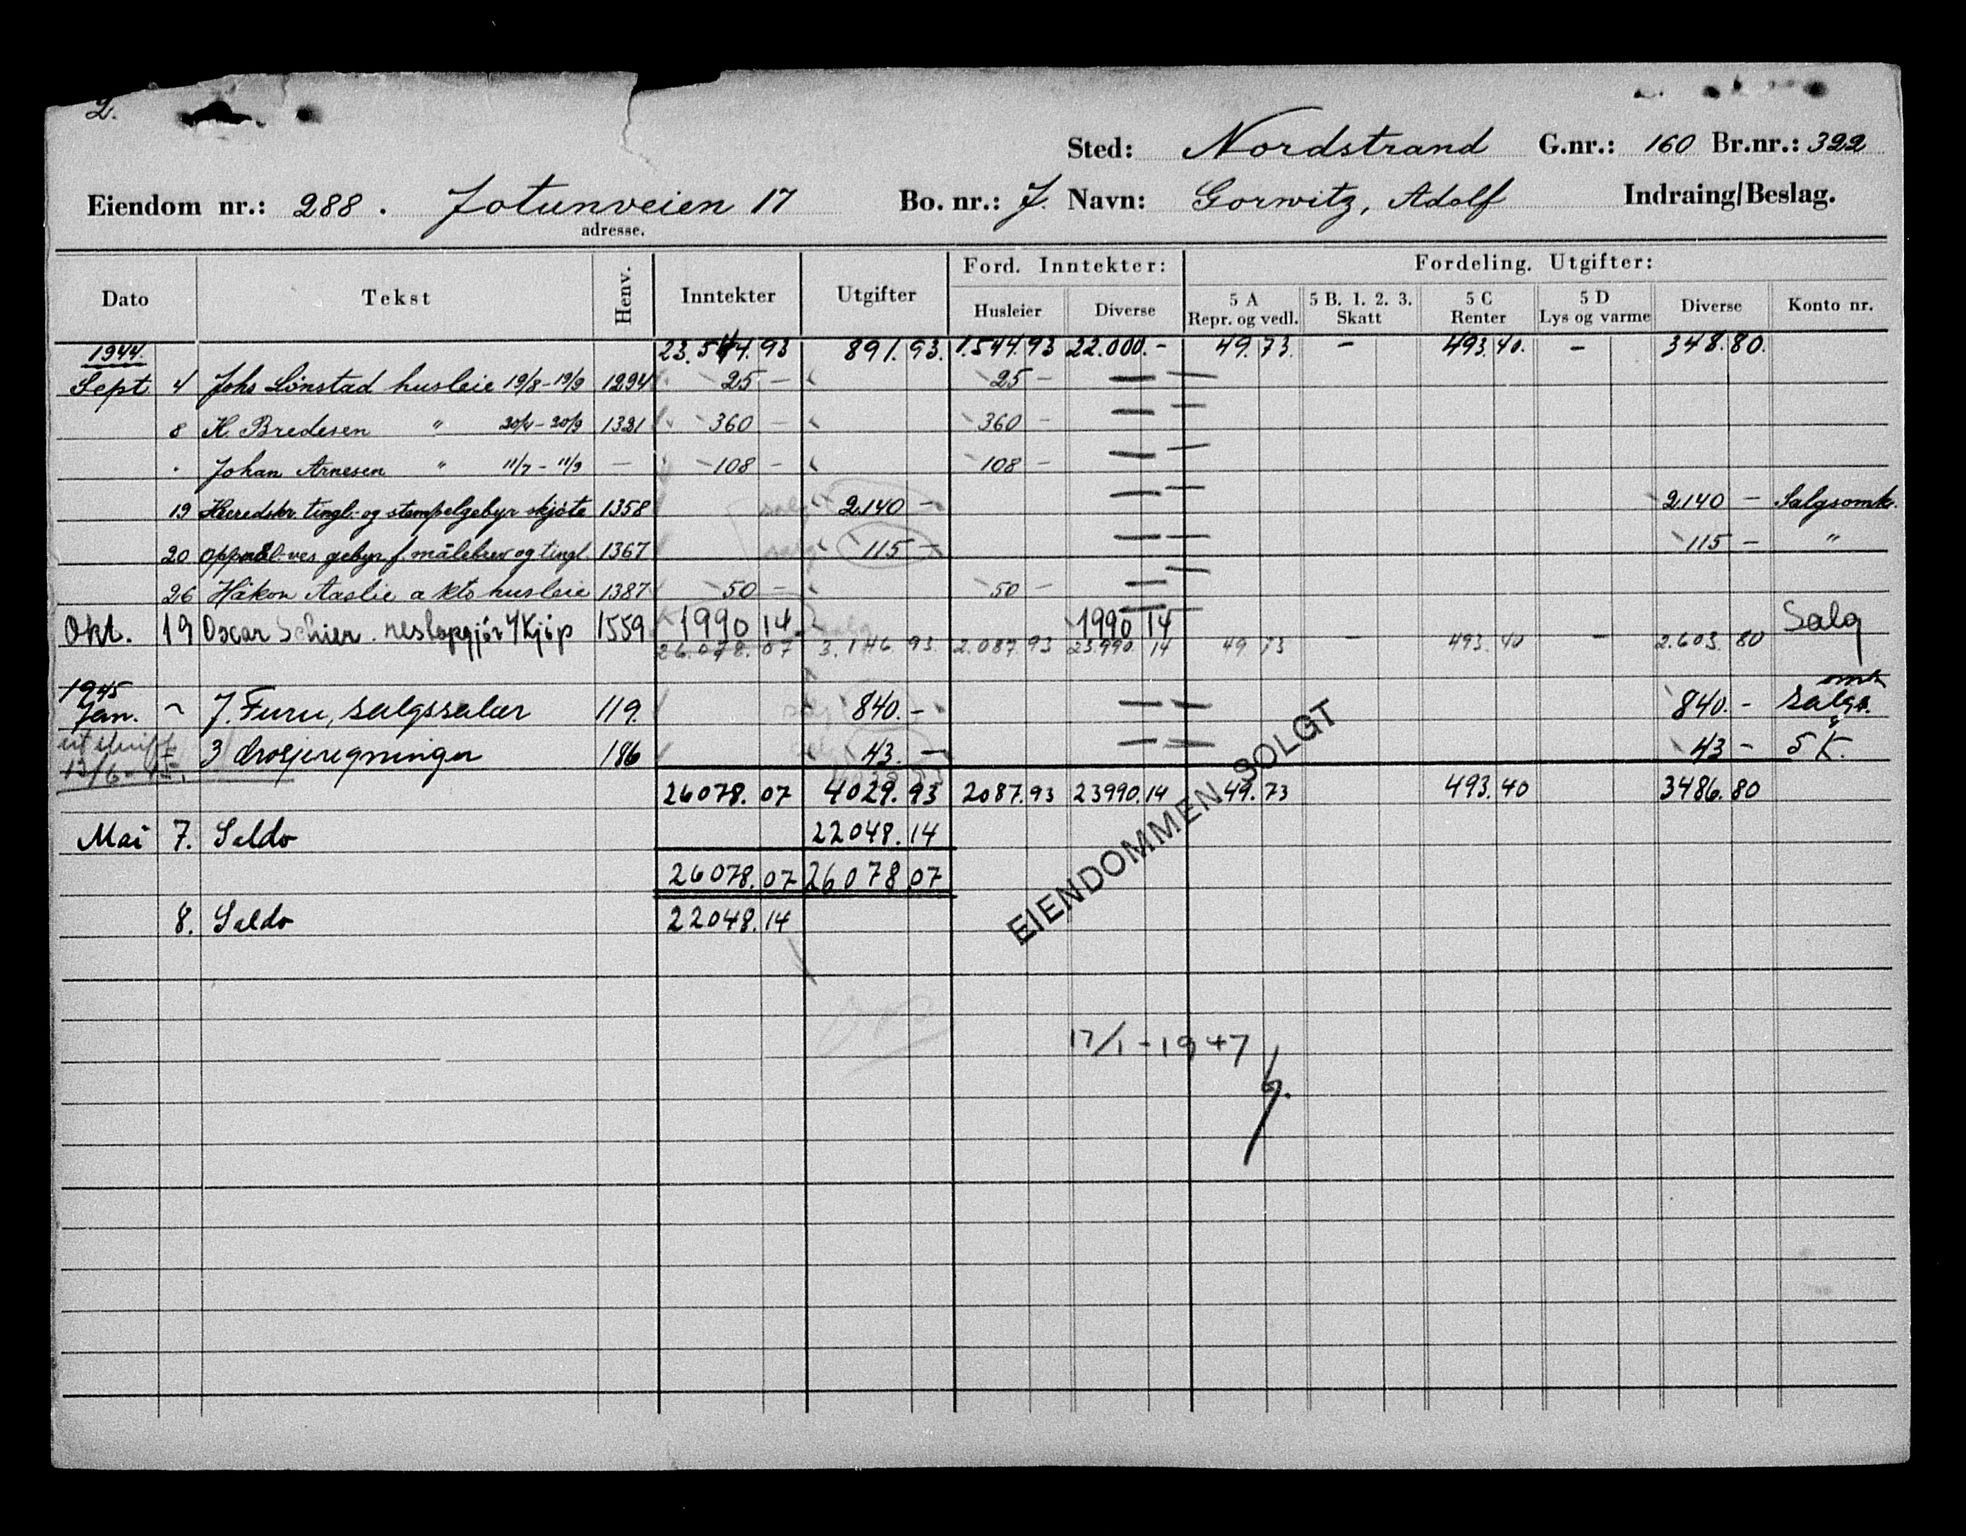 2.
Sted: Nordstrand G.nr.: 160 Br.nr.: 322
Eiendom nr.: 288. Jotunveien 17 Bo. nr.: J. Navn: Gorwitz, Adolf Indraing/Beslag.
adresse.
Ford. Inntekter: Fordeling. Utgifter:
Dato Tekst Henv. Inntekter Utgifter Husleier Diverse 5 A Repr. og vedl. 5 B. 1. 2. 3. Skatt 5 C Renter 5 D Lys og varme Diverse Konto nr.
1944 23.544.93 891.93. 1.544.93 22.000.- 49.73. - 493.40. - 348.80.
Sept 4 Johs Lönstad husleie 19/8-19/9 1294 25 - 25 -
8 H. Bredesen " 20/4-20/9 1321 360 - 360 -
" Johan Arnesen " 11/7-11/9 - 108 - 108 -
19 Heredskr tingl.- og stempelgebyr skjøte 1358 salg 2140 - 2.140 - Salgsomk.
20 Oppmål.ves gebyr f. målebrev og tingl. 1367 salg 115 - 115 - "
26 Håkon Aaslie a kto husleie 1387 50 - 50 -
Okt. 19 Oscar Schier. restoppgjör v/Kjöp 1559 1990 14 salg 1990 14 Salg
26.078.07 3.146 93. 2.087.93 23.990.14 49 73 - 493.40 - 2.603.80
1945
Jan. - J. Furu, salgssalær 119. 840.- 840.- Salgs. omk
3 drosjeregninger 186 43.- 43- 5 K.
13/6-45.
26078.07 4029.93 2087.93 23990.14 49.73 493.40 3486.80
Mai 7. Saldo 22048.14
26078.07 26078 07
8. Saldo 22048.14
EIENDOMMEN SOLGT
17/1-1947